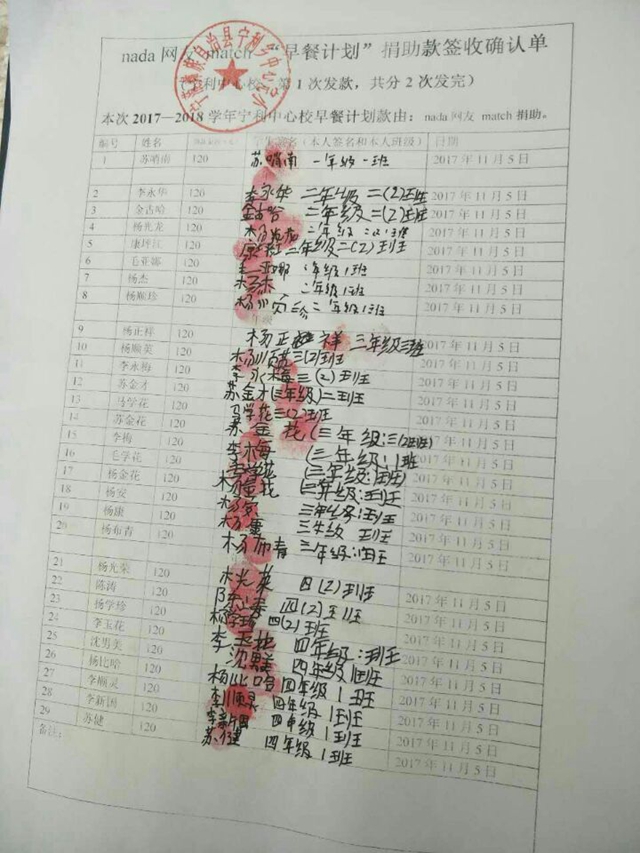 nada 网友 match “早餐计划”捐助款签收确认单
第 1 次发款，共分 2 次发完）
本次 2017—2018 学年宁利中心校早餐计划款由：nada 网友 match 捐助。
编号 姓名 （本人签名和本人班级） 日期
1 苏哨南 120 苏哨南 一年级一班 2017 年 11 月 5 日
2 李永华 120 李永华 二年级二(2)班 2017 年 11 月 5 日
3 金古哈 120 金古哈 二年级二(2)班 2017 年 11 月 5 日
4 杨光龙 120 杨光龙 二年级 2017 年 11 月 5 日
5 康坪江 120 二年级二(2)班 2017 年 11 月 5 日
6 毛亚娜 120 年级1班 2017 年 11 月 5 日
7 杨杰 120 杨杰 二年级1班 2017 年 11 月 5 日
8 杨顺珍 120 杨顺珍 二年级1班 2017 年 11 月 5 日
9 杨正祥 120 杨正祥 三年级 2017 年 11 月 5 日
10 杨顺英 120 杨顺英 三(2)班 2017 年 11 月 5 日
11 李永梅 120 李永梅 三(2)班 2017 年 11 月 5 日
12 苏金才 120 苏金才 (三年级)二班 2017 年 11 月 5 日
13 马学花 120 马学花 三(2)班 2017 年 11 月 5 日
14 苏金花 120 苏金花 (三年级:三(2)班) 2017 年 11 月 5 日
15 李梅 120 李梅 (三年级:1班 2017 年 11 月 5 日
16 毛学花 120 毛学花 (三年级: 2017 年 11 月 5 日
17 杨金花 120 杨金花 三年级: 2017 年 11 月 5 日
18 杨安 120 杨安 三年级: 2017 年 11 月 5 日
19 杨康 120 杨康 三年级 2017 年 11 月 5 日
20 杨布青 120 杨布青 三年级: 2017 年 11 月 5 日
21 杨光荣 120 四(2)班 2017 年 11 月 5 日
22 陈涛 120 陈涛 四(2)班 2017 年 11 月 5 日
23 杨学珍 120 四(2)班 2017 年 11 月 5 日
24 李玉花 120 李玉花 四年级: 2017 年 11 月 5 日
25 沈男美 120 四年级1班 2017 年 11 月 5 日
26 杨比哈 120 杨比哈 四年级1班 2017 年 11 月 5 日
27 李顺灵 120 李顺灵 四年级1班 2017 年 11 月 5 日
28 李新国 120 四年级1班 2017 年 11 月 5 日
29 苏健 120 苏健 四年级1班 2017 年 11 月 5 日
备注： 2017 年 11 月 5 日